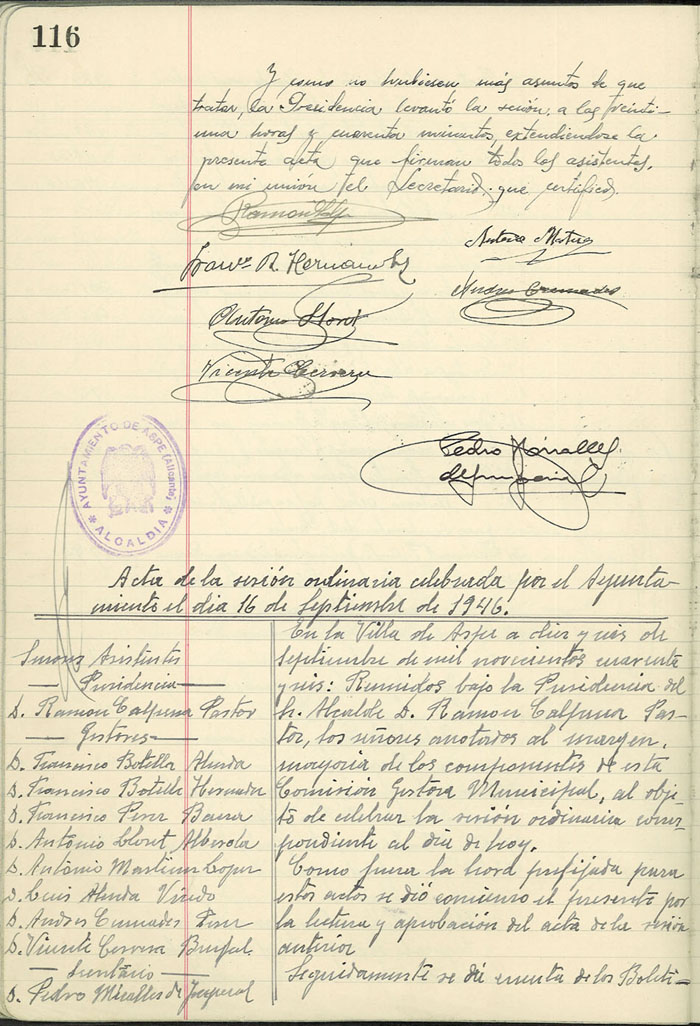 116
Y como no hubiesen más asuntos de que
tratar, la Presidencia levantó la sesión a las veinti-
una horas y cuarenta minutos, extendiendose la
presente acta que firman todos los asistentes,
en mi unión el Secretario, que certifico.
Antonio Martinez
Hernandez
Antonio Lloret
Vicente Cervera
Pedro Miralles
AYUNTAMIENTO DE ASPE (Alicante)
* ALCALDIA *
Acta de la sesión ordinaria celebrada por el Ayunta-
miento el dia 16 de Septiembre de 1946.
Señores Asistentes
Presidencia
D. Ramon Calpena Pastor
Gestores
D. Francisco Botella Almda
D. Francisco Botella Hernandez
D. Francisco Perez Baera
D. Antonio Lloret Alberola
D. Antonio Martinez Lopez
D. Luis Almda
D. Andres Cremades Perez
D. Vicente Cervera
Secretario
D. Pedro Miralles de
En la Villa de Aspe a diez y seis de
Septiembre de mil novecientos cuarenta
y seis: Reunidos bajo la Presidencia del
Sr. Alcalde D. Ramon Calpena Pas-
tor, los señores anotados al margen,
mayoria de los componentes de esta
Comisión Gestora Municipal, al obje-
to de celebrar la sesión ordinaria corres-
pondiente al dia de hoy.
Como fuera la hora prefijada para
estos actos se dió comienzo el presente por
la lectura y aprobación del acta de la sesión
anterior
Seguidamente se dió cuenta de los Boleti-